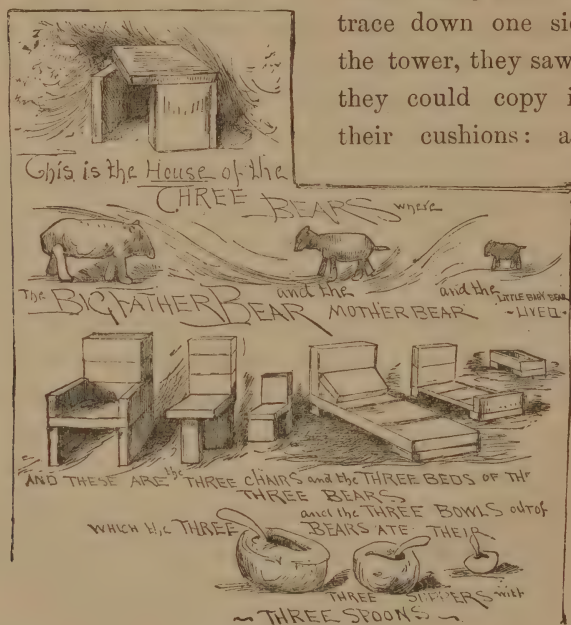 trace down one si
the tower, they saw
they could copy i
their cushions: a
This is the House of the
THREE BEARS where
The BIG FATHER BEAR and the MOTHER BEAR and the LITTLE BABY BEAR
~LIVED~
AND THESE ARE the THREE CHAIRS and the THREE BEDS OF THE
THREE BEARS
and the THREE BOWLS out of
WHICH the THREE BEARS ATE THEIR
THREE SUPPERS with
~ THREE SPOONS ~